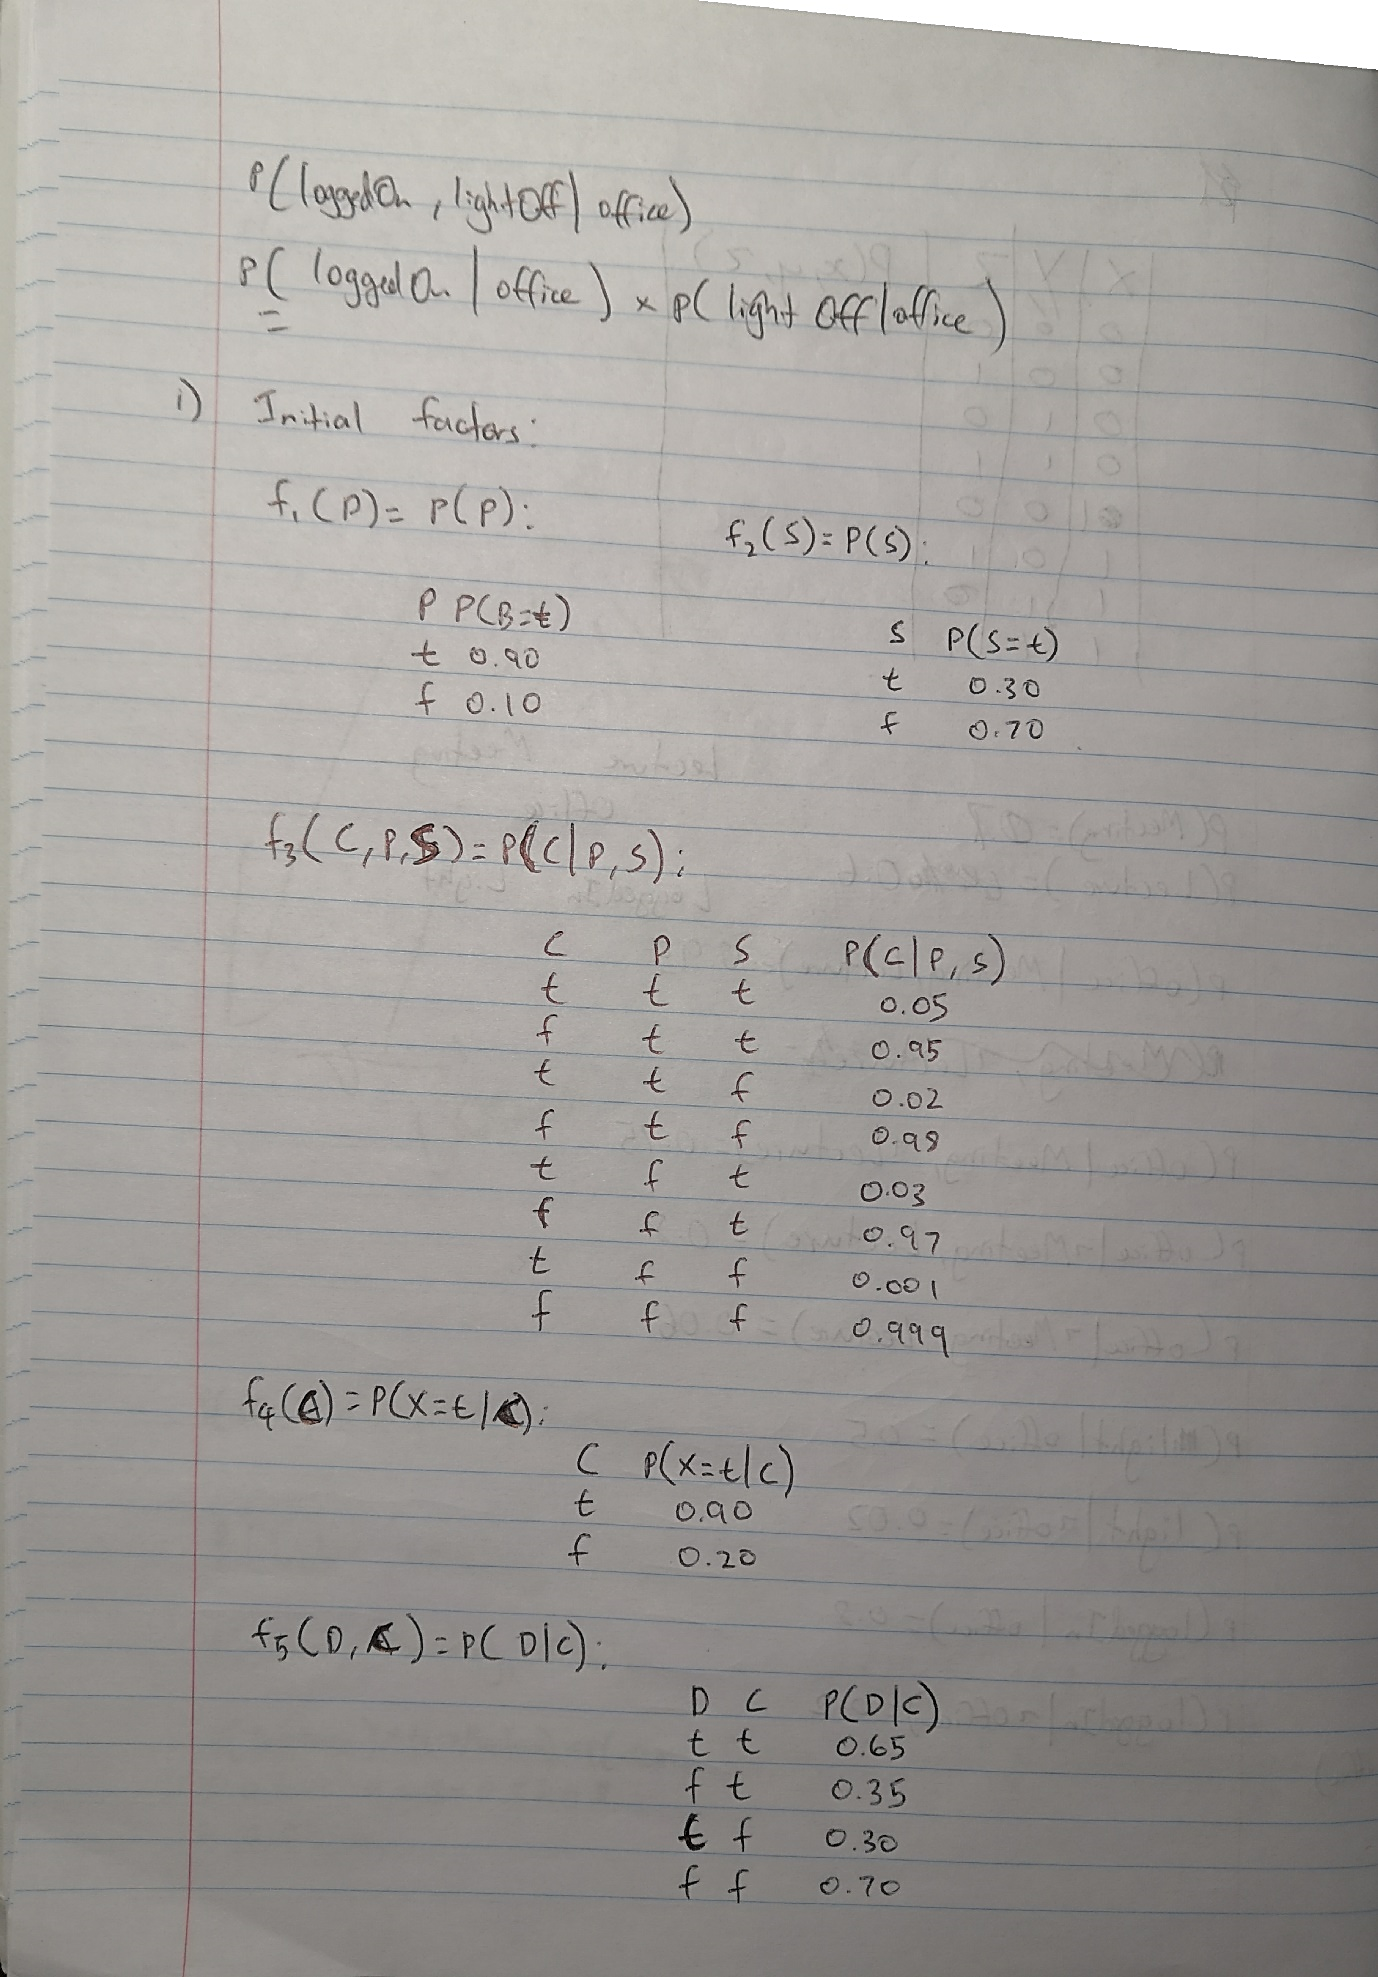 P(loggedOn, lightOff | office)
P(loggedOn | office) x P(light Off | office)
=
i) Initial factors:
f₁(P) = P(P):
f₂(S) = P(S):
P P(B=t)
t 0.90
f 0.10
S P(S=t)
t 0.30
f 0.70
f₃(C, P, S) = P(C|P, S):
C P S P(C|P, S)
t t t 0.05
f t t 0.95
t t f 0.02
f t f 0.98
t f t 0.03
f f t 0.97
t f f 0.001
f f f 0.999
f₄(C) = P(X=t|C):
C P(X=t|C)
t 0.90
f 0.20
f₅(D, C) = P(D|C):
D C P(D|C)
t t 0.65
f t 0.35
t f 0.30
f f 0.70